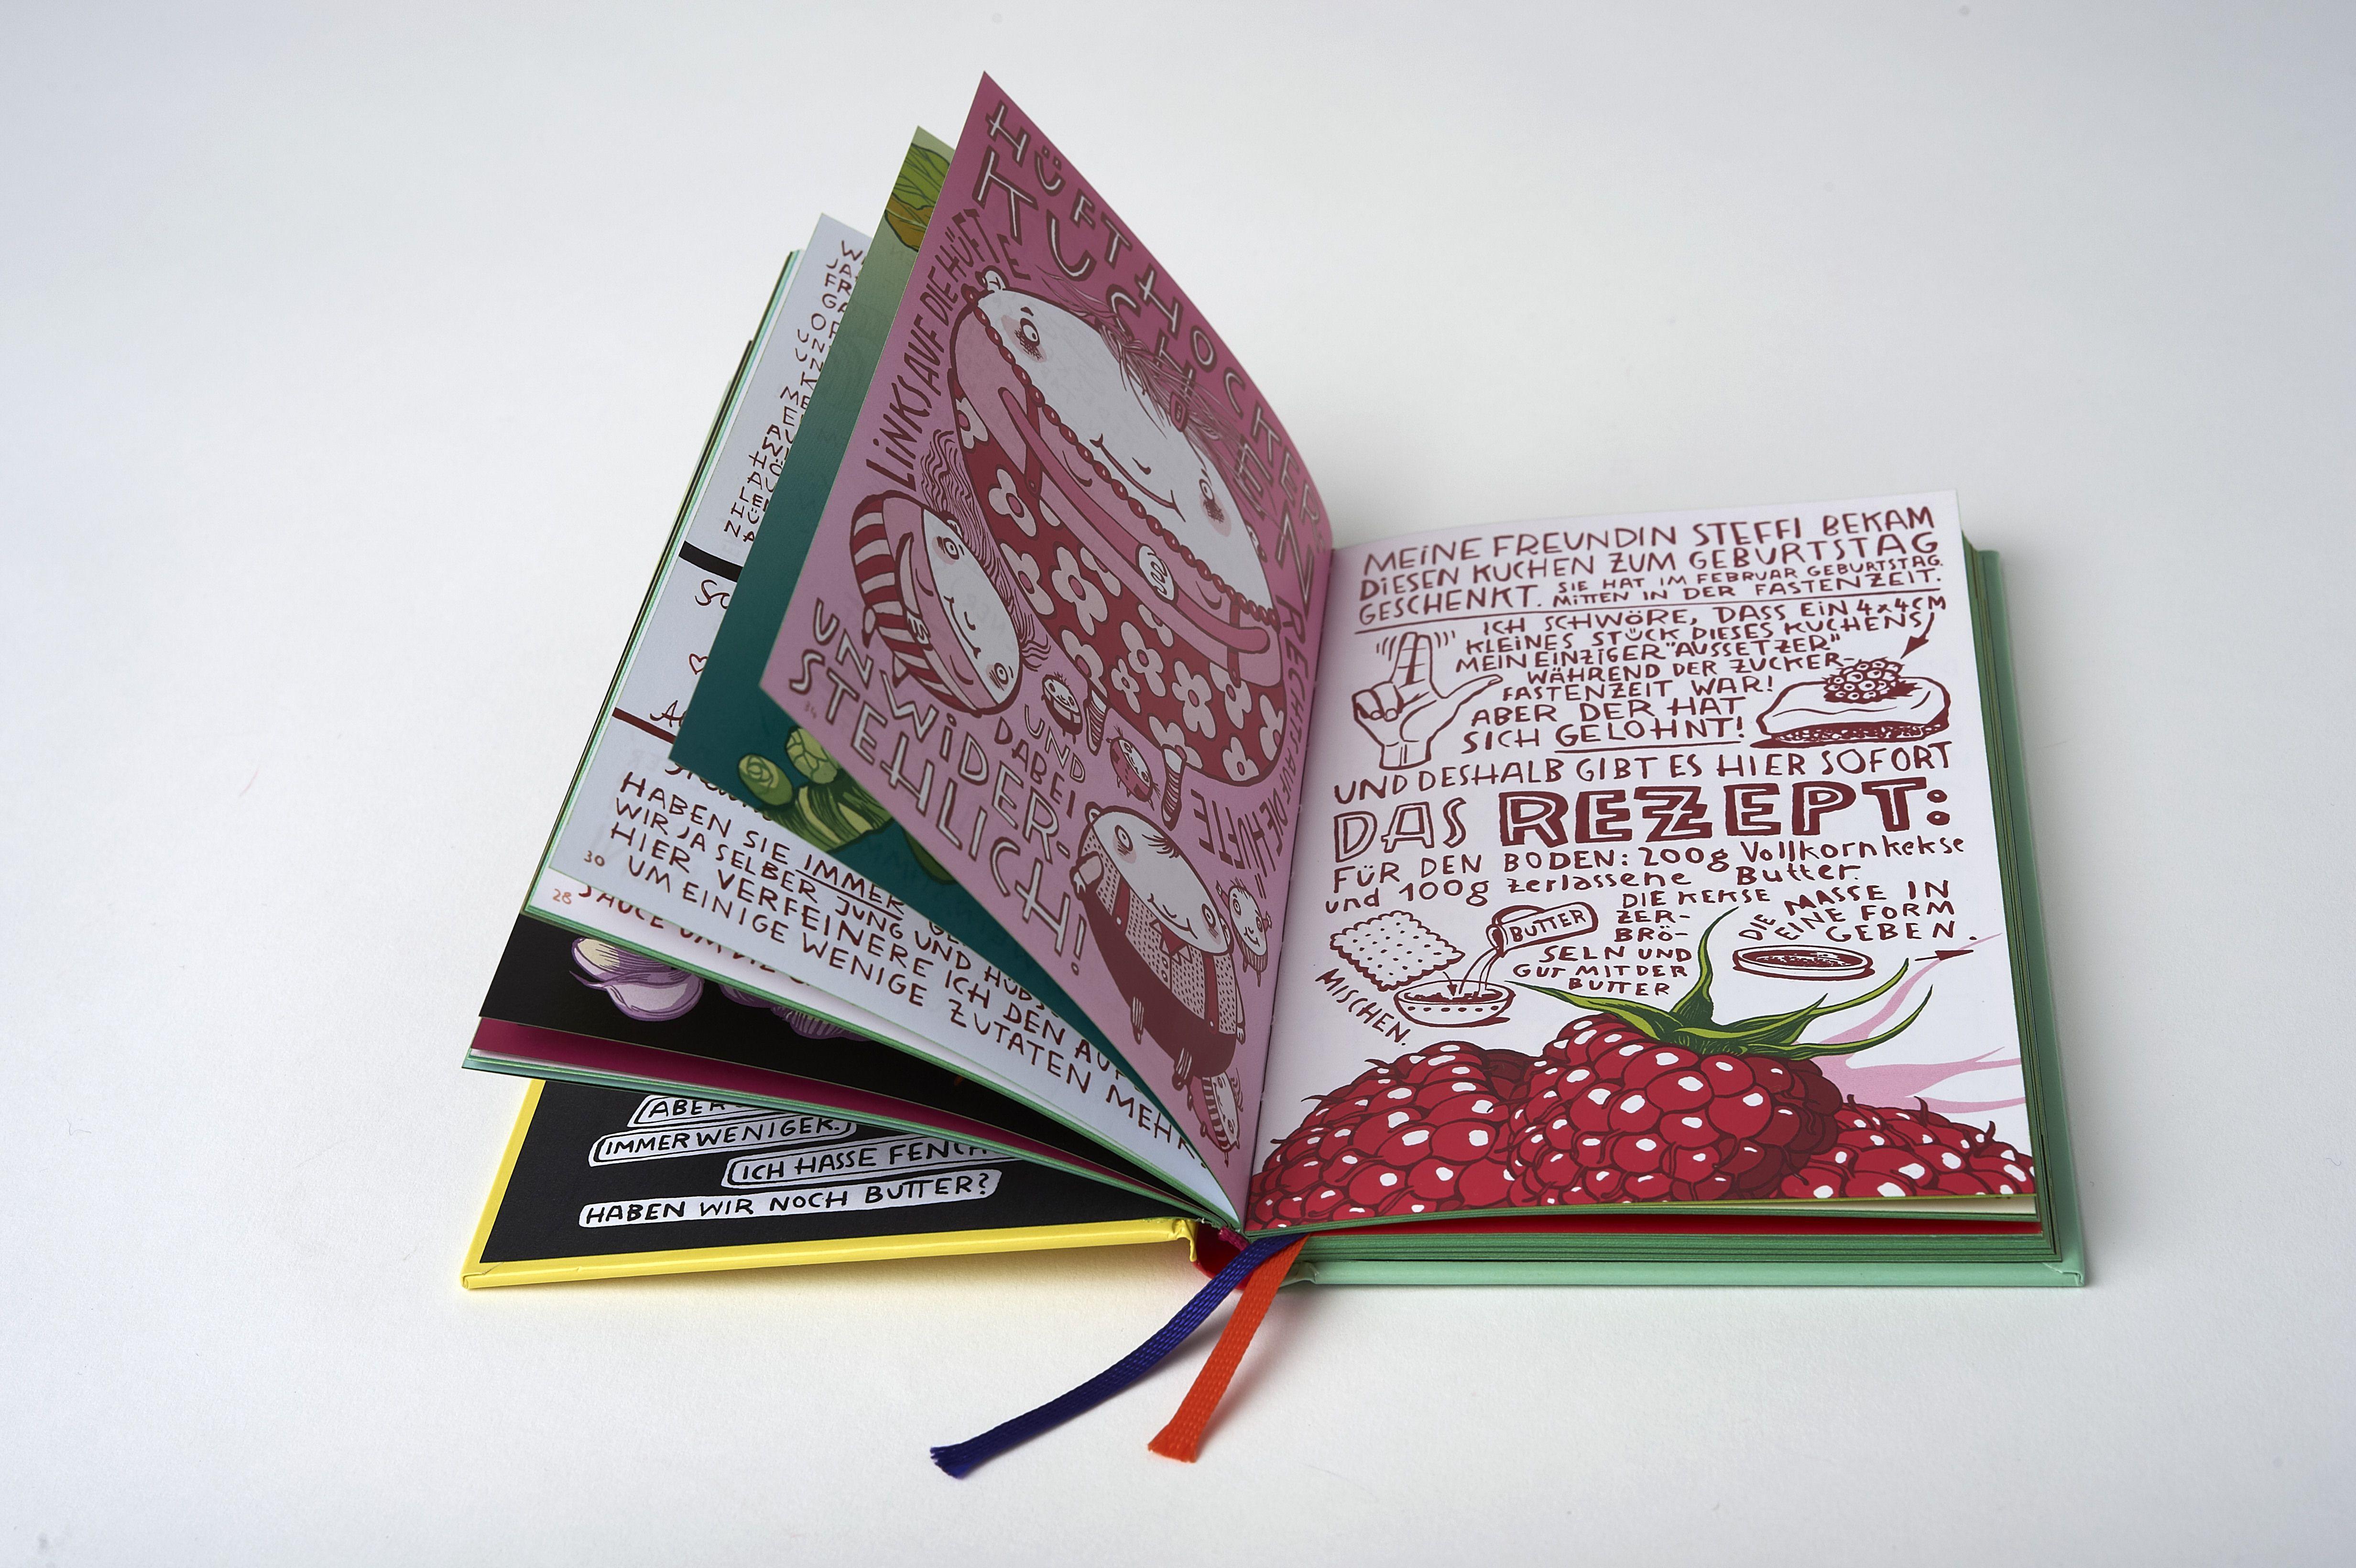 HÜFTHOCKER-
KUCHEN
LINKS AUF DIE HÜFTE
RECHTS AUF DIE HÜFTE
UND
DABEI
UNWIDER-
STEHLICH!
34
MEINE FREUNDIN STEFFI BEKAM
DIESEN KUCHEN ZUM GEBURTSTAG
GESCHENKT. SIE HAT IM FEBRUAR GEBURTSTAG.
MITTEN IN DER FASTENZEIT.
ICH SCHWÖRE, DASS EIN 4x4CM
KLEINES STÜCK DIESES KUCHENS
MEIN EINZIGER "AUSSETZER"
WÄHREND DER ZUCKER-
FASTENZEIT WAR!
ABER DER HAT
SICH GELOHNT!
UND DESHALB GIBT ES HIER SOFORT
DAS REZEPT:
FÜR DEN BODEN: 200g Vollkornkekse
und 100g zerlassene Butter.
DIE KEKSE
ZER-
BRÖ-
SELN UND
GUT MIT DER
BUTTER
MISCHEN.
BUTTER
DIE MASSE IN
EINE FORM
GEBEN.
HABEN SIE IMMER
WIR JA SELBER JUNG UND
HIER VERFEINERE ICH DEN
UM EINIGE WENIGE ZUTATEN MEHR
30
28
SAUCE UM DIE
ABER
IMMER WENIGER.
ICH HASSE
HABEN WIR NOCH BUTTER?